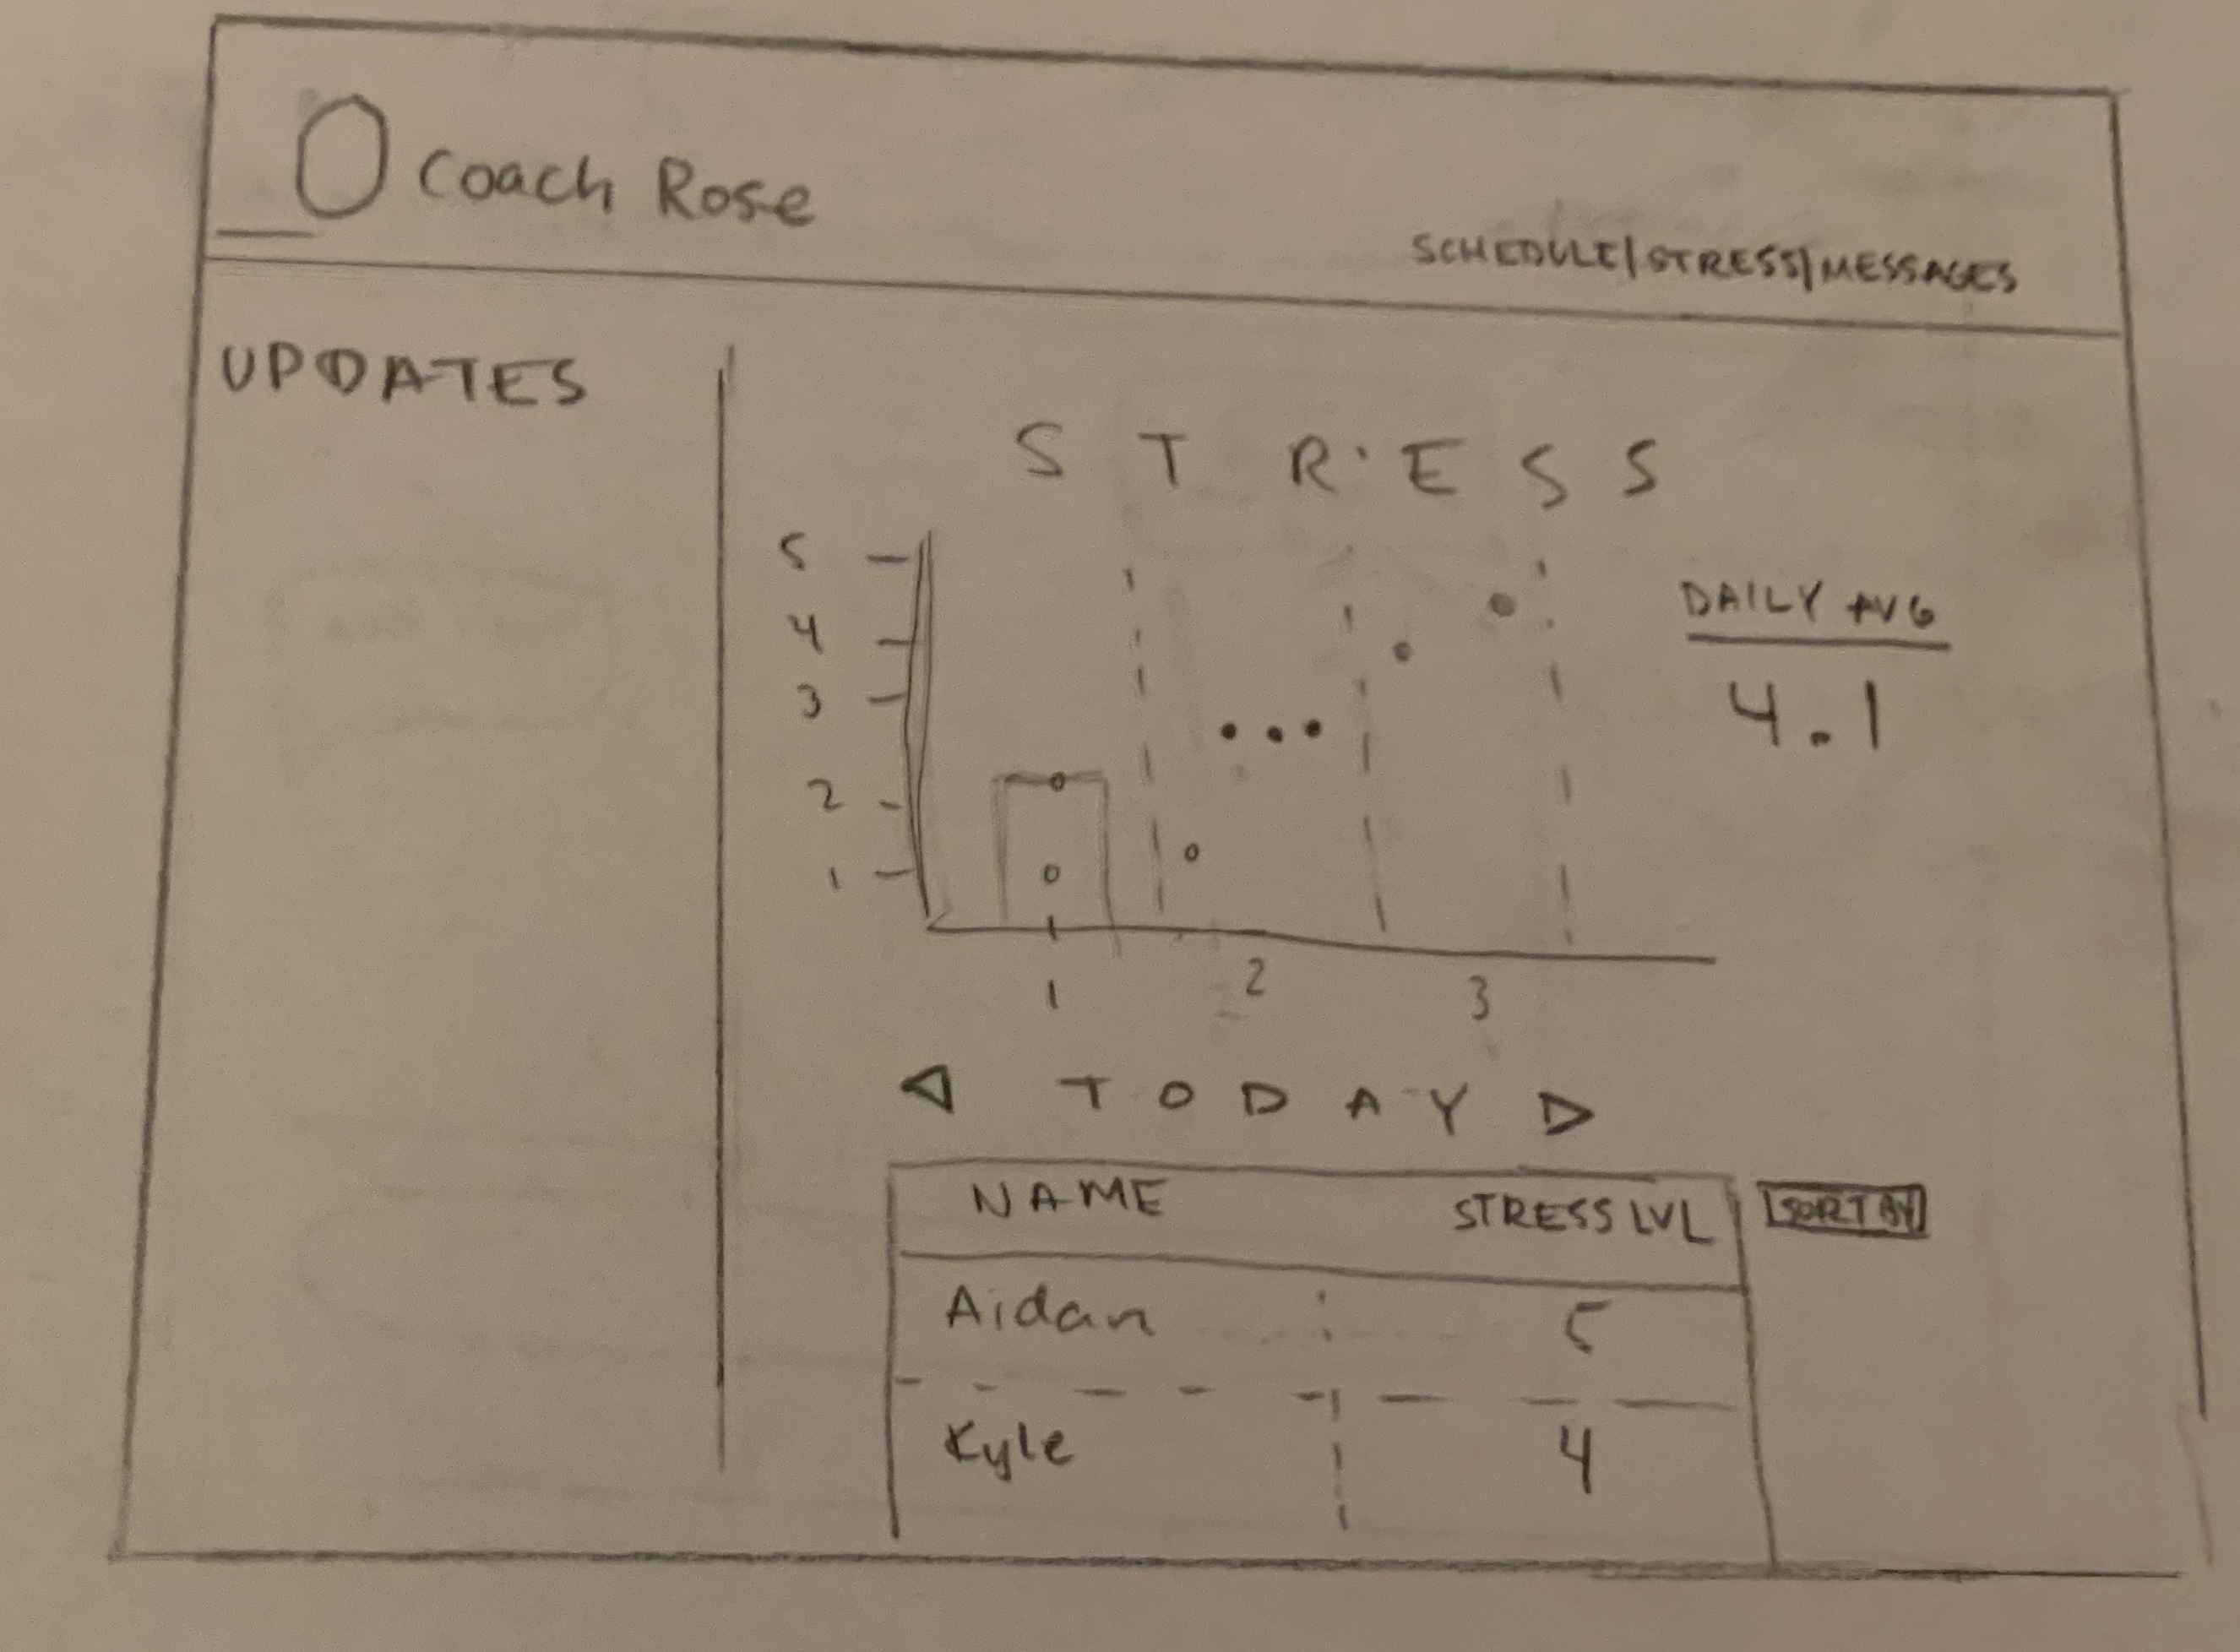 Coach Rose
SCHEDULE|STRESS|MESSAGES
UPDATES
STRESS
5
4
3
2
1
DAILY AVG
4.1
1 2 3
TODAY
NAME STRESS LVL
SORT BY
Aidan 5
Kyle 4